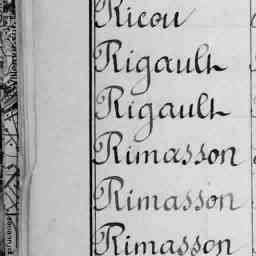 Ricou
Rigault
Rigault
Rimasson
Rimasson
Rimasson